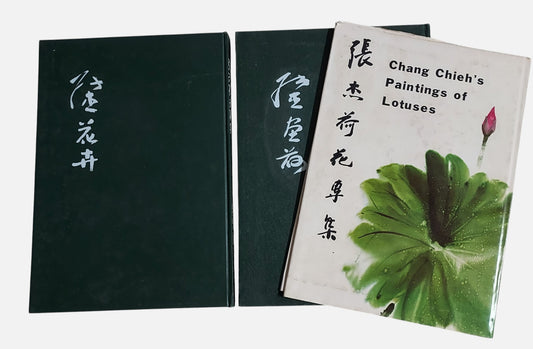 花卉
張杰荷花專集
Chang Chieh's
Paintings of
Lotuses